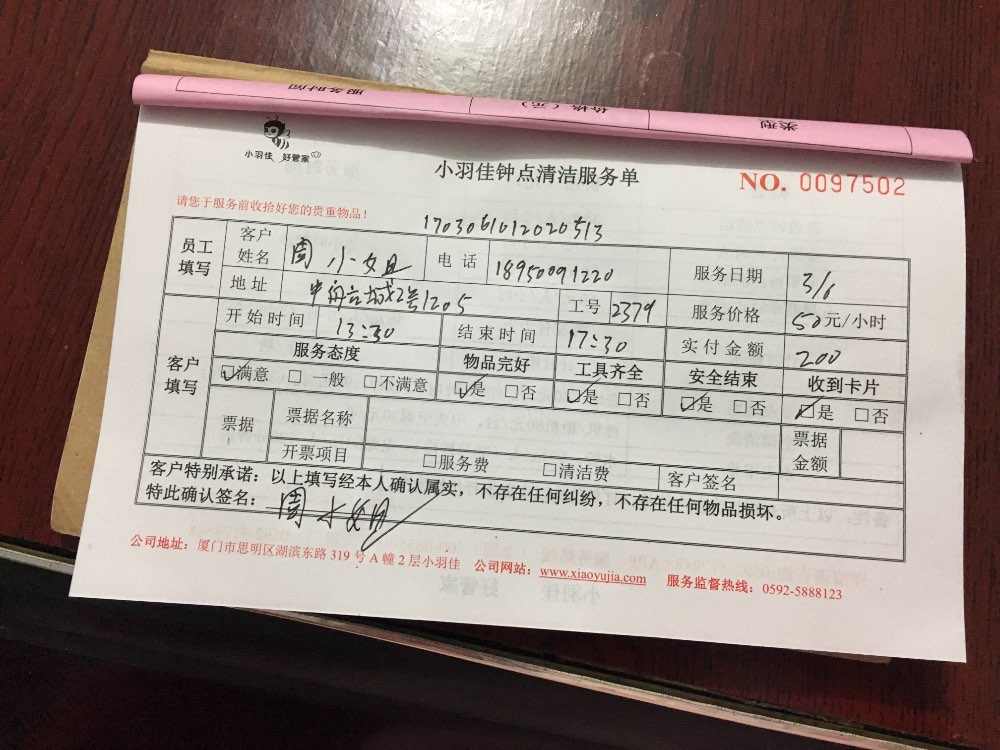 服务时间 价格（元） 类型
小羽佳 好管家
小羽佳钟点清洁服务单
NO. 0097502
请您于服务前收拾好您的贵重物品！
1703061012020513
员工填写 客户姓名 周小姐 电话 18950091220 服务日期 3/6
地址 工号 2379 服务价格 50元/小时
客户填写 开始时间 13:30 结束时间 17:30 实付金额 200
服务态度 物品完好 工具齐全 安全结束 收到卡片
☑满意 □一般 □不满意 ☑是 □否 ☑是 □否 ☑是 □否 ☑是 □否
票据 票据名称 票据金额
开票项目 □服务费 □清洁费 客户签名
客户特别承诺：以上填写经本人确认属实，不存在任何纠纷，不存在任何物品损坏。
特此确认签名： 周小姐
公司地址：厦门市思明区湖滨东路 319 号 A 幢 2 层小羽佳 公司网站：www.xiaoyujia.com 服务监督热线：0592-5888123